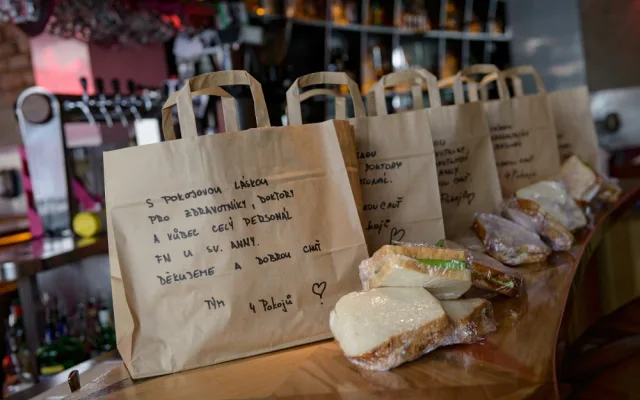 S POKOJOVOU LÁSKOU
PRO ZDRAVOTNÍKY, DOKTORY
A VŮBEC CELÝ PERSONÁL
FN U SV. ANNY.
DĚKUJEME A DOBROU CHUŤ
TÝM 4 Pokojů
DOKTORY
CHUŤ